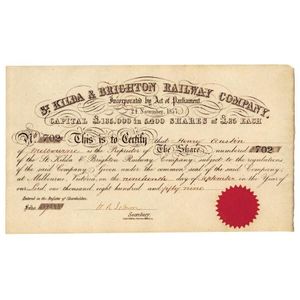 ST KILDA & BRIGHTON RAILWAY COMPANY.
Incorporated by Act of Parliament.
24 November, 1857.
CAPITAL £135,000 in 5,400 SHARES of £25 EACH
No 702 This is to Certify that Henry
Melbourne is the Proprietor of The Share numbered 702
of the St Kilda & Brighton Railway Company, subject to the regulations
of the said Company. Given under the common seal of the said Company,
at Melbourne, Victoria, on the nineteenth day of September in the Year of
our Lord, one thousand, eight hundred and fifty nine
Entered in the Register of Shareholders.
Folio
Secretary.